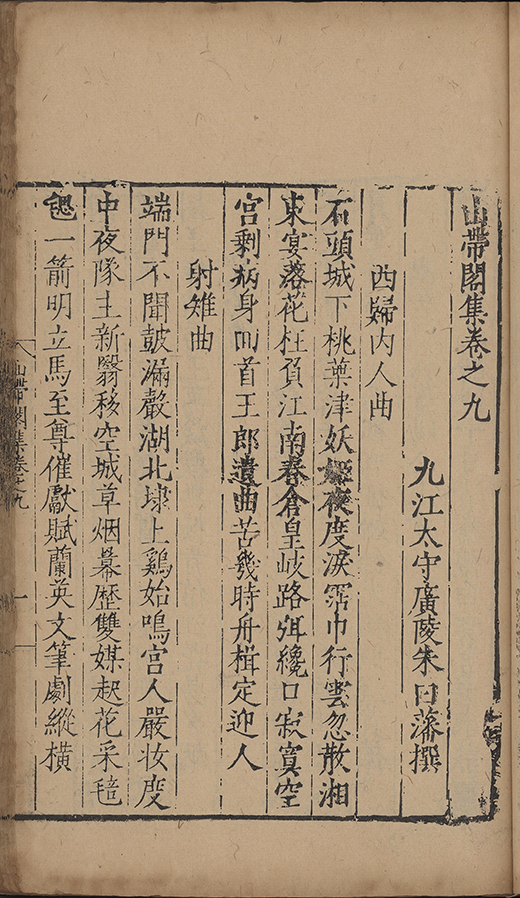 山帶閣集卷之九
九江太守廣陵朱曰藩撰
西歸内人曲
石頭城下桃葉津妖姬夜度淚霑巾行雲忽散湘
東宴落花枉負江南春倉皇岐路弭纔口寂寞空
宫剩病身回首王郎遺曲苦幾時舟楫定迎人
射雉曲
端門不聞鼓漏聲湖北埭上鷄始鳴宫人嚴妆度
中夜隊主新翳移空城草烟幕歷雙媒起花采毰
毸一箭明立馬至尊催獻賦蘭英文筆劇縱橫
山帶閣集卷之九
一